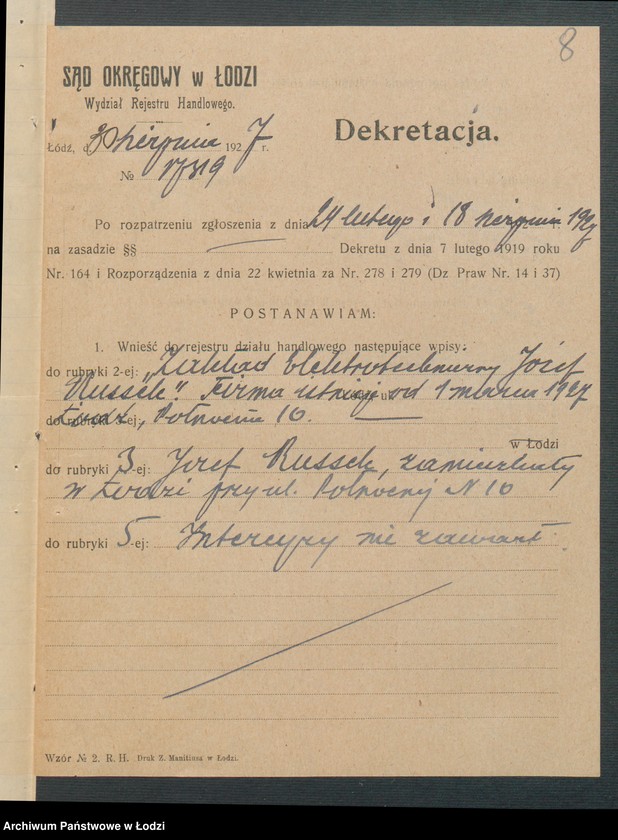 8
SĄD OKRĘGOWY w ŁODZI
Wydział Rejestru Handlowego.
Dekretacja.
Łódź, d. 30 sierpnia 1927 r.
№
Po rozpatrzeniu zgłoszenia z dnia 24 lutego i 18 sierpnia 1927
na zasadzie §§ Dekretu z dnia 7 lutego 1919 roku
Nr. 164 i Rozporządzenia z dnia 22 kwietnia za Nr. 278 i 279 (Dz Praw Nr. 14 i 37)
POSTANAWIAM:
1. Wnieść do rejestru działu handlowego następujące wpisy:
do rubryki 2-ej: „Zakład Elektrotechniczny Józef
Russek". Firma istnieje od 1 marca 1927
Łódź, Północna 10.
w Łodzi
do rubryki 3-ej: Józef Russek, zamieszkały
w Łodzi przy ul. Północnej N 10
do rubryki 5-ej: Intercyzy nie zawarł
Wzór № 2. R. H. Druk Z. Manitiusa w Łodzi.
Archiwum Państwowe w Łodzi